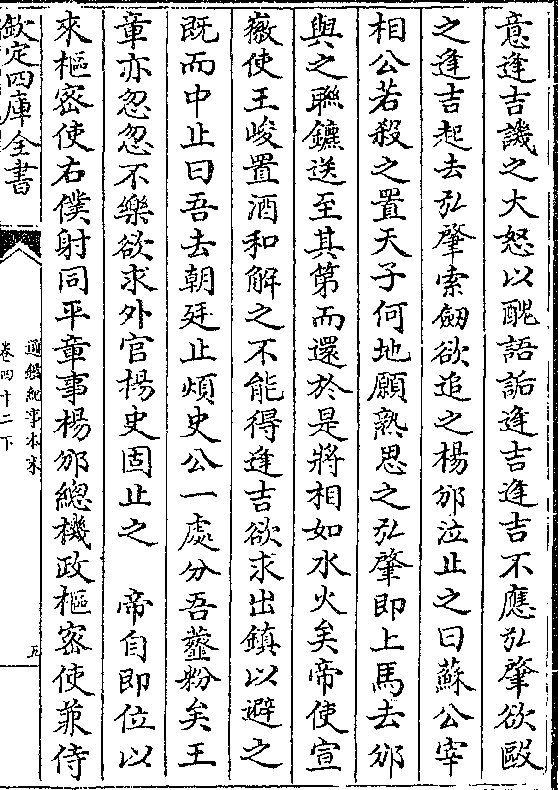 意逢吉譏之大怒以醜語詬逢吉逢吉不應弘肇欲毆
之逢吉起去弘肇索劔欲追之楊邠泣止之曰蘇公宰
相公若殺之置天子何地願熟思之弘肇即上馬去邠
與之聯鑣送至其第而還於是將相如水火矣帝使宣
徽使王峻置酒和解之不能得逢吉欲求出鎮以避之
既而中止曰吾去朝廷止煩史公一處分吾虀粉矣王
章亦忽忽不樂欲求外官楊史固止之　帝自即位以
來樞密使右僕射同平章事楊邠總機政樞密使兼侍
欽定四庫全書
通鑑紀事本末
卷四十二下
五